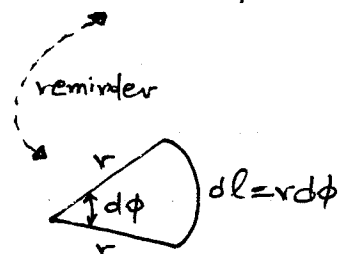 reminder
r
dϕ
dl=rdϕ
r